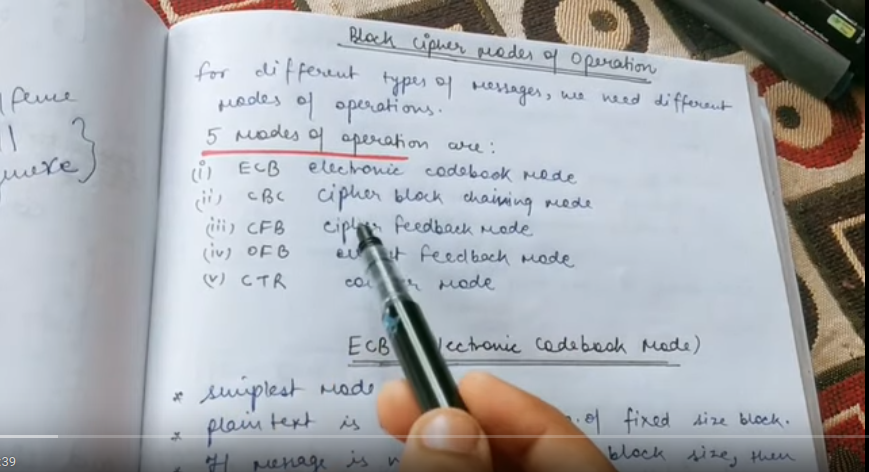 fence
quexe
Block cipher modes of operation
for different types of messages, we need different
modes of operations.
5 modes of operation are:
(i) ECB electronic codebook mode
(ii) CBC cipher block chaining mode
(iii) CFB cipher feedback mode
(iv) OFB feedback mode
(v) CTR mode
ECB lectronic Codebook Mode)
* simplest mode
* plain text is of fixed size block.
* If message is block size, then
:39